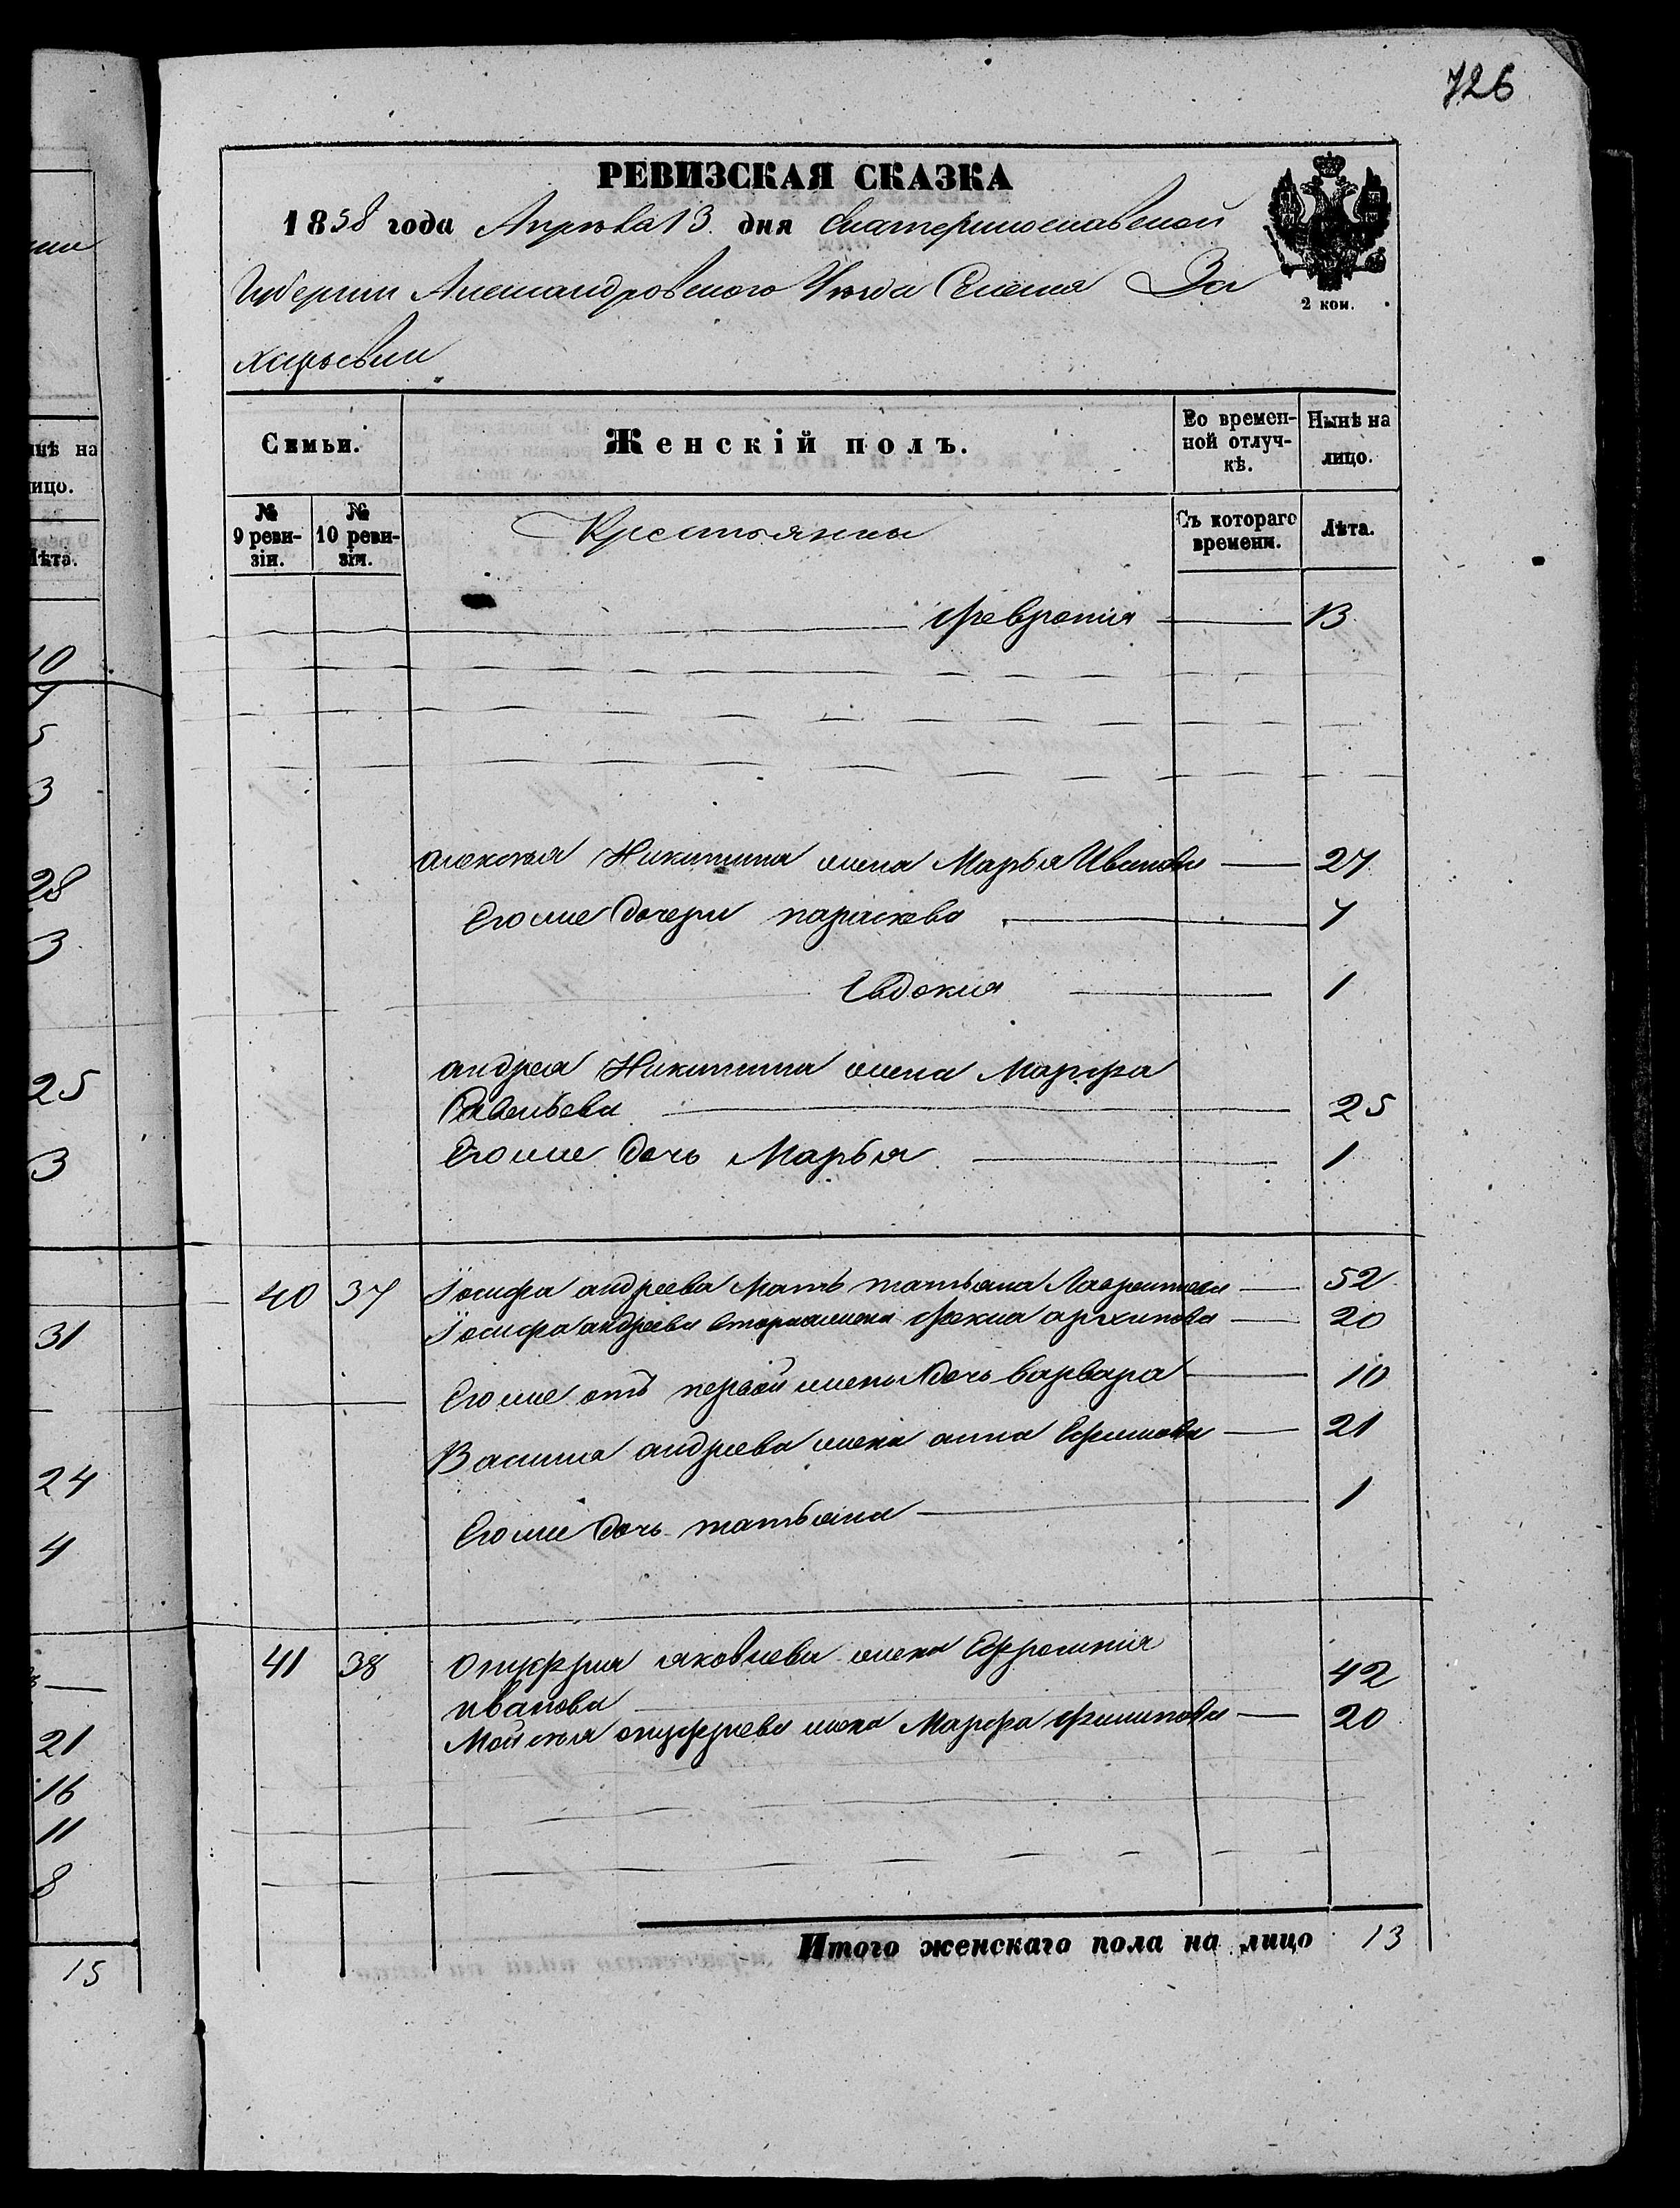 726
РЕВИЗСКАЯ СКАЗКА
1858 года Апрѣля 13 дня Екатеринославской
Губерніи Александровского Уѣзда Селенія За
харьевки
2 коп.
Семьи. Женскій полъ. Во времен-ной отлуч-кѣ. Нынѣ на лицо.
№ 9 реви-зіи. № 10 реви-зіи. Крестьянки Съ котораго времени. Лѣта.
Февронія 13
алексѣя Никитина жена Марья Иванова 27
Его же дочери параскева 7
Евдокия 1
андрея Никитина жена Марфа
Савельева 25
Его же дочь Марья 1
40 37 Іосифа андреева Мать татьяна Лаврентьева 52
Іосифа андреева вторая жена Фекла архипова 20
Его же отъ первой жены дочь варвара 10
Василія андреева жена анна Ефимова 21
Его же дочь татьяна 1
41 38 Онуфрия яковлева жена Ефросинія
иванова 42
Мойсѣя онуфриева жена Марфа филипова 20
Итого женскаго пола на лицо 13
нѣ на
лицо.
Лѣта.
10
7
5
3
28
3
25
3
31
24
4
21
16
11
8
15